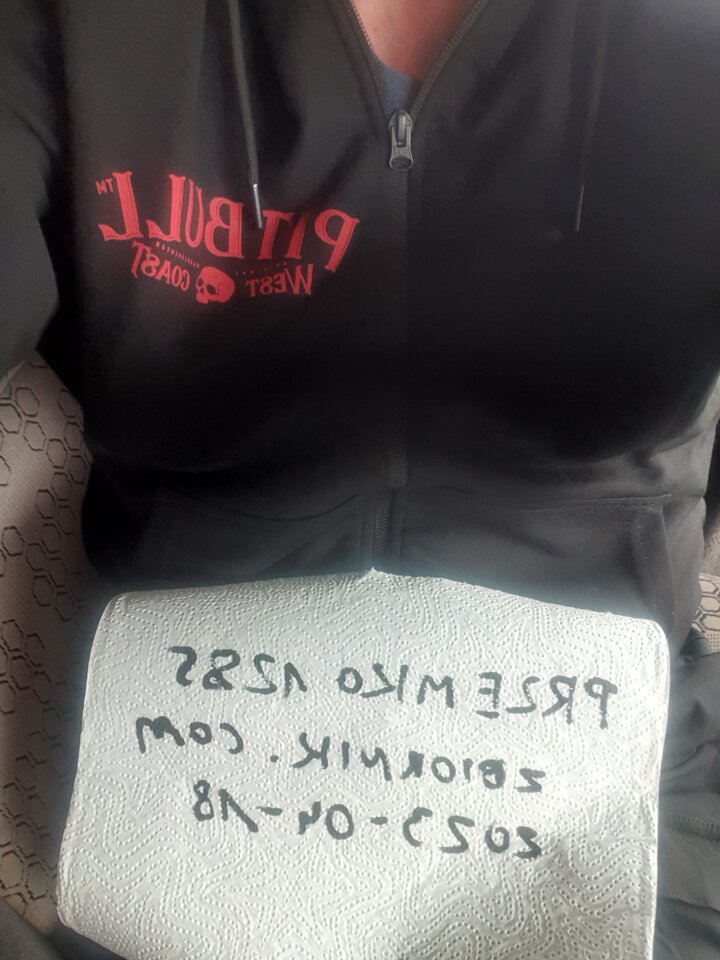 PITBULL™
WEST COAST
PRZEMKO 1285
ZBIORNIK.COM
2023-04-18